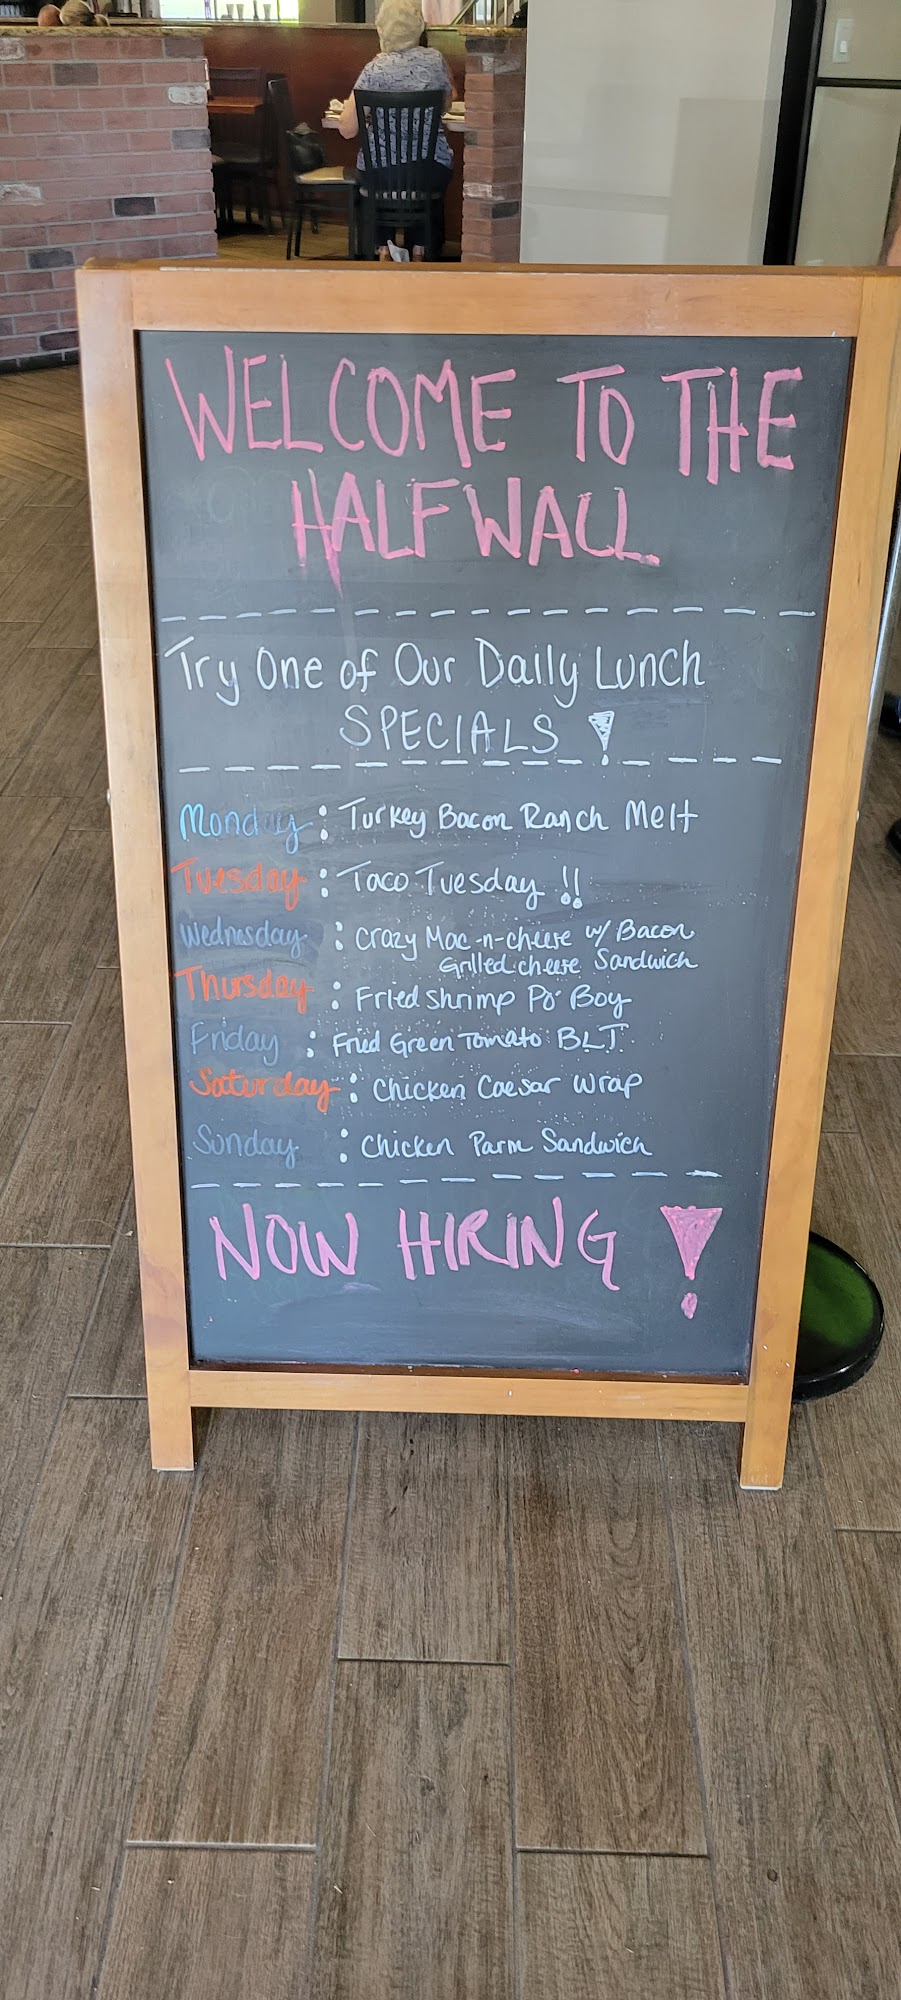 WELCOME TO THE
HALFWALL
Try One of Our Daily Lunch
SPECIALS !
Monday : Turkey Bacon Ranch Melt
Tuesday : Taco Tuesday !!
Wednesday : Crazy Mac-n-cheese w/ Bacon
Grilled cheese Sandwich
Thursday : Fried Shrimp Po' Boy
Friday : Fried Green Tomato BLT
Saturday : Chicken Caesar Wrap
Sunday : Chicken Parm Sandwich
NOW HIRING !